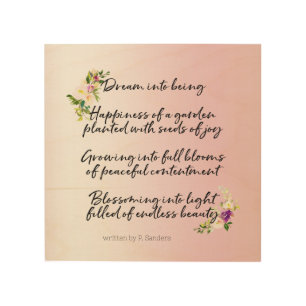 Dream into being
Happiness of a garden
planted with seeds of joy
Growing into full blooms
of peaceful contentment
Blossoming into light
filled of endless beauty
written by P. Sanders